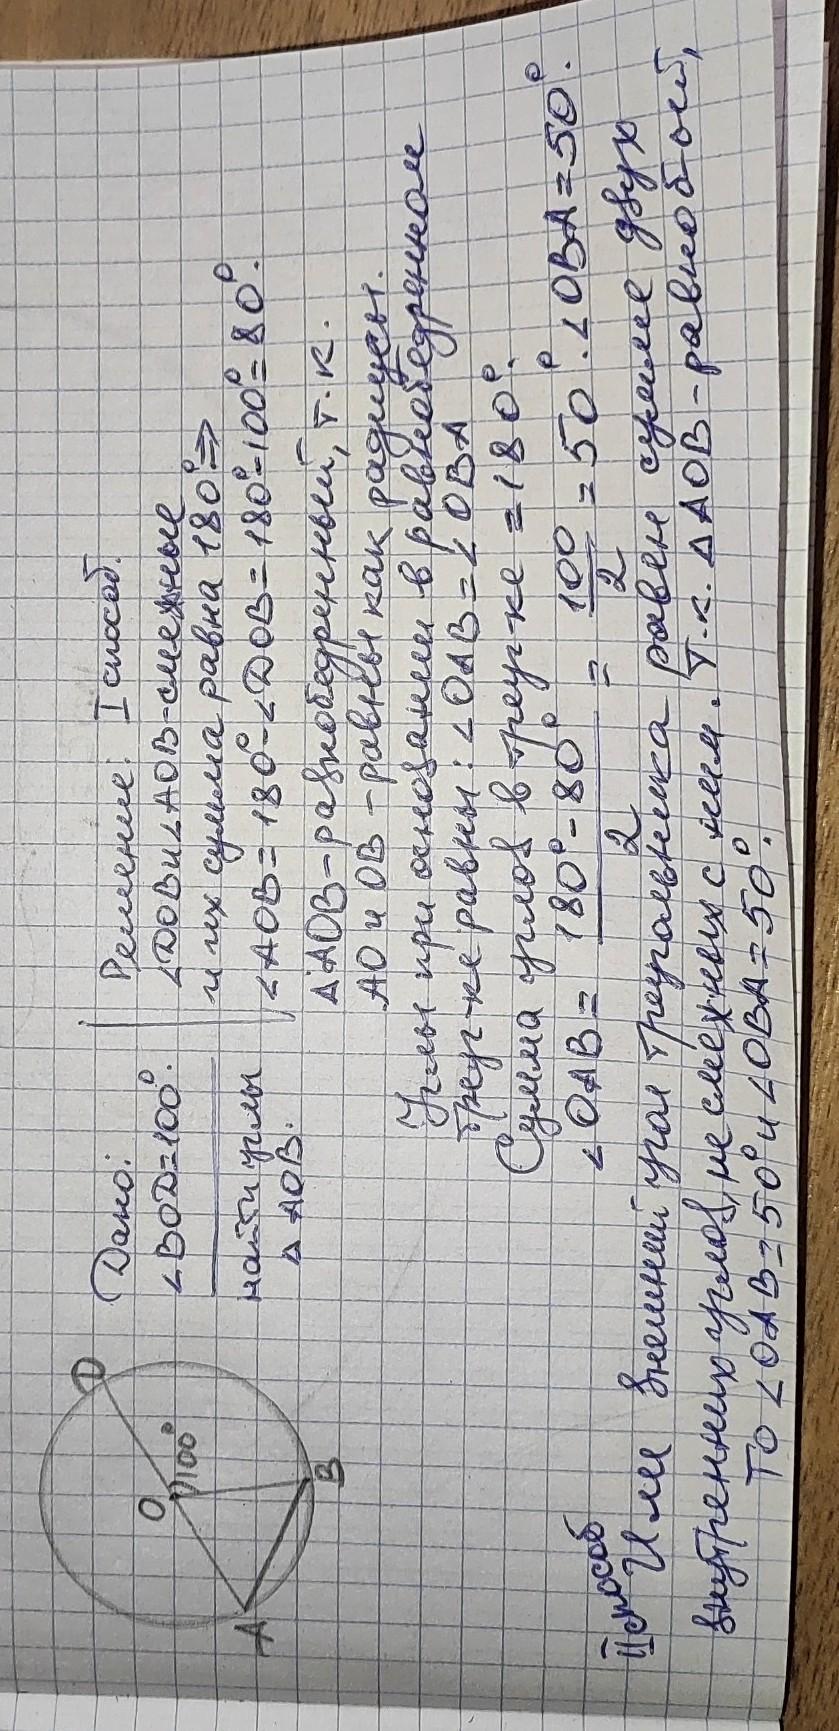 D
O
100°
A
B
Дано:
∠BOD=100°.
найти углы
△ AOB.
Решение: I способ.
∠DOB и ∠AOB-смежные
и их сумма равна 180°⇒
∠AOB=180°-∠DOB=180°-100°=80°.
△AOB-равнобедренный, т.к.
AO и OB-равны как радиусы.
Углы при основании в равнобедренном
треуг-ке равны: ∠OAB=∠OBA
Сумма углов в треуг-ке =180°.
∠OAB= (180°-80°)/2 = 100/2 =50°. ∠OBA=50°.
II способ
Или внешний угол треугольника равен сумме двух
внутренних углов, не смежных с ним. Т.к. △AOB-равнобный,
То ∠OAB=50° и ∠OBA=50°.